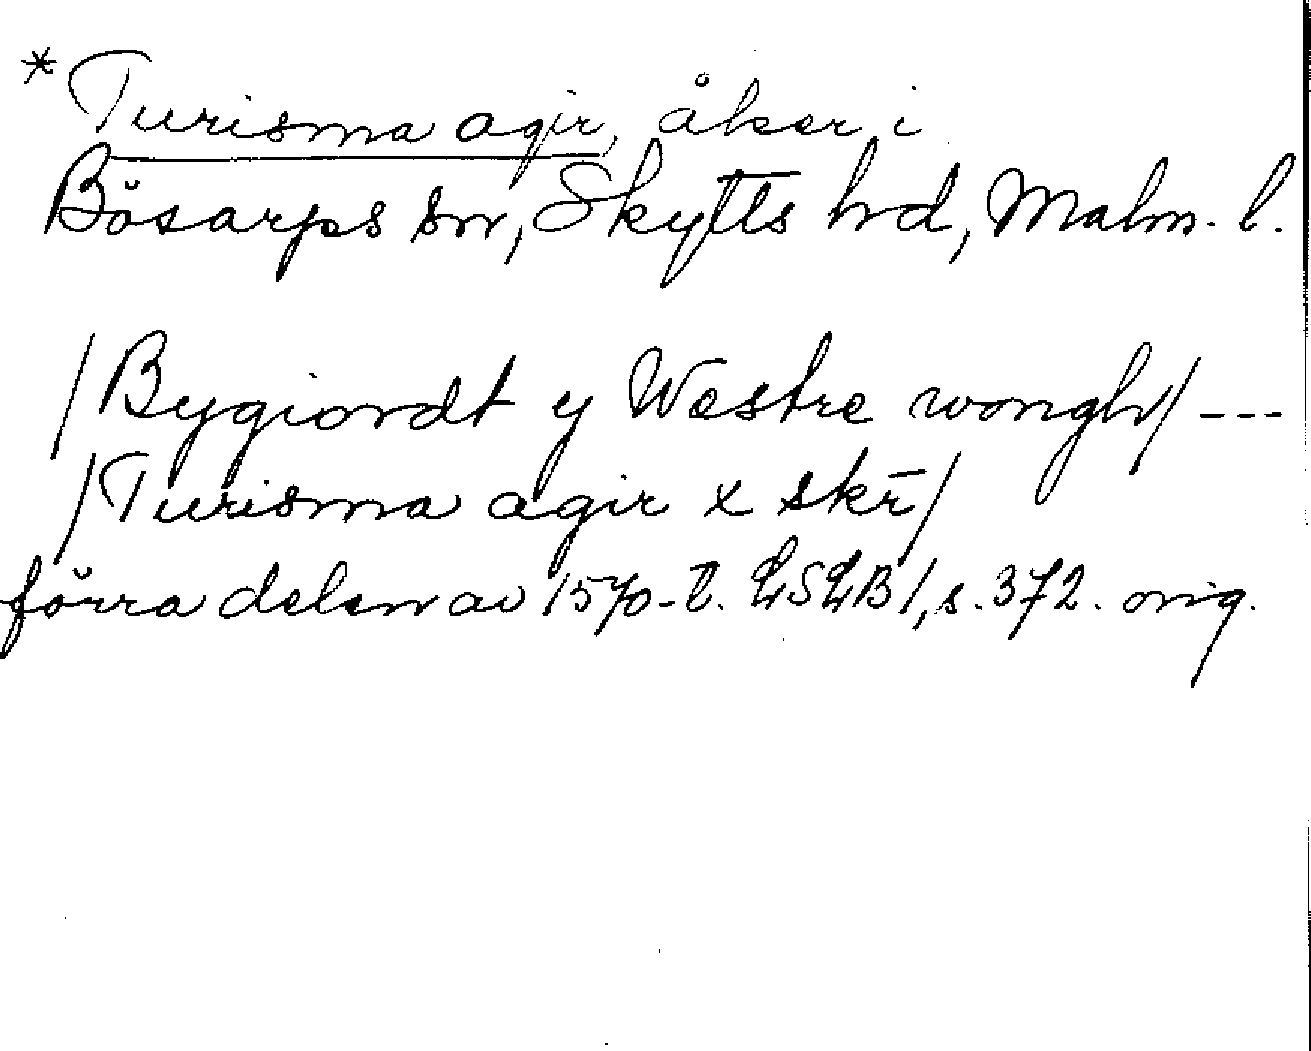 * Turisma agir, åker i
Bösarps sn, Skytts hd, Malm. l.
/Bygiordt y Westre wongh/ ---
/Turisma agir x skr̄/
förra delen av 1570-t. LSLB 1, s. 372. orig.